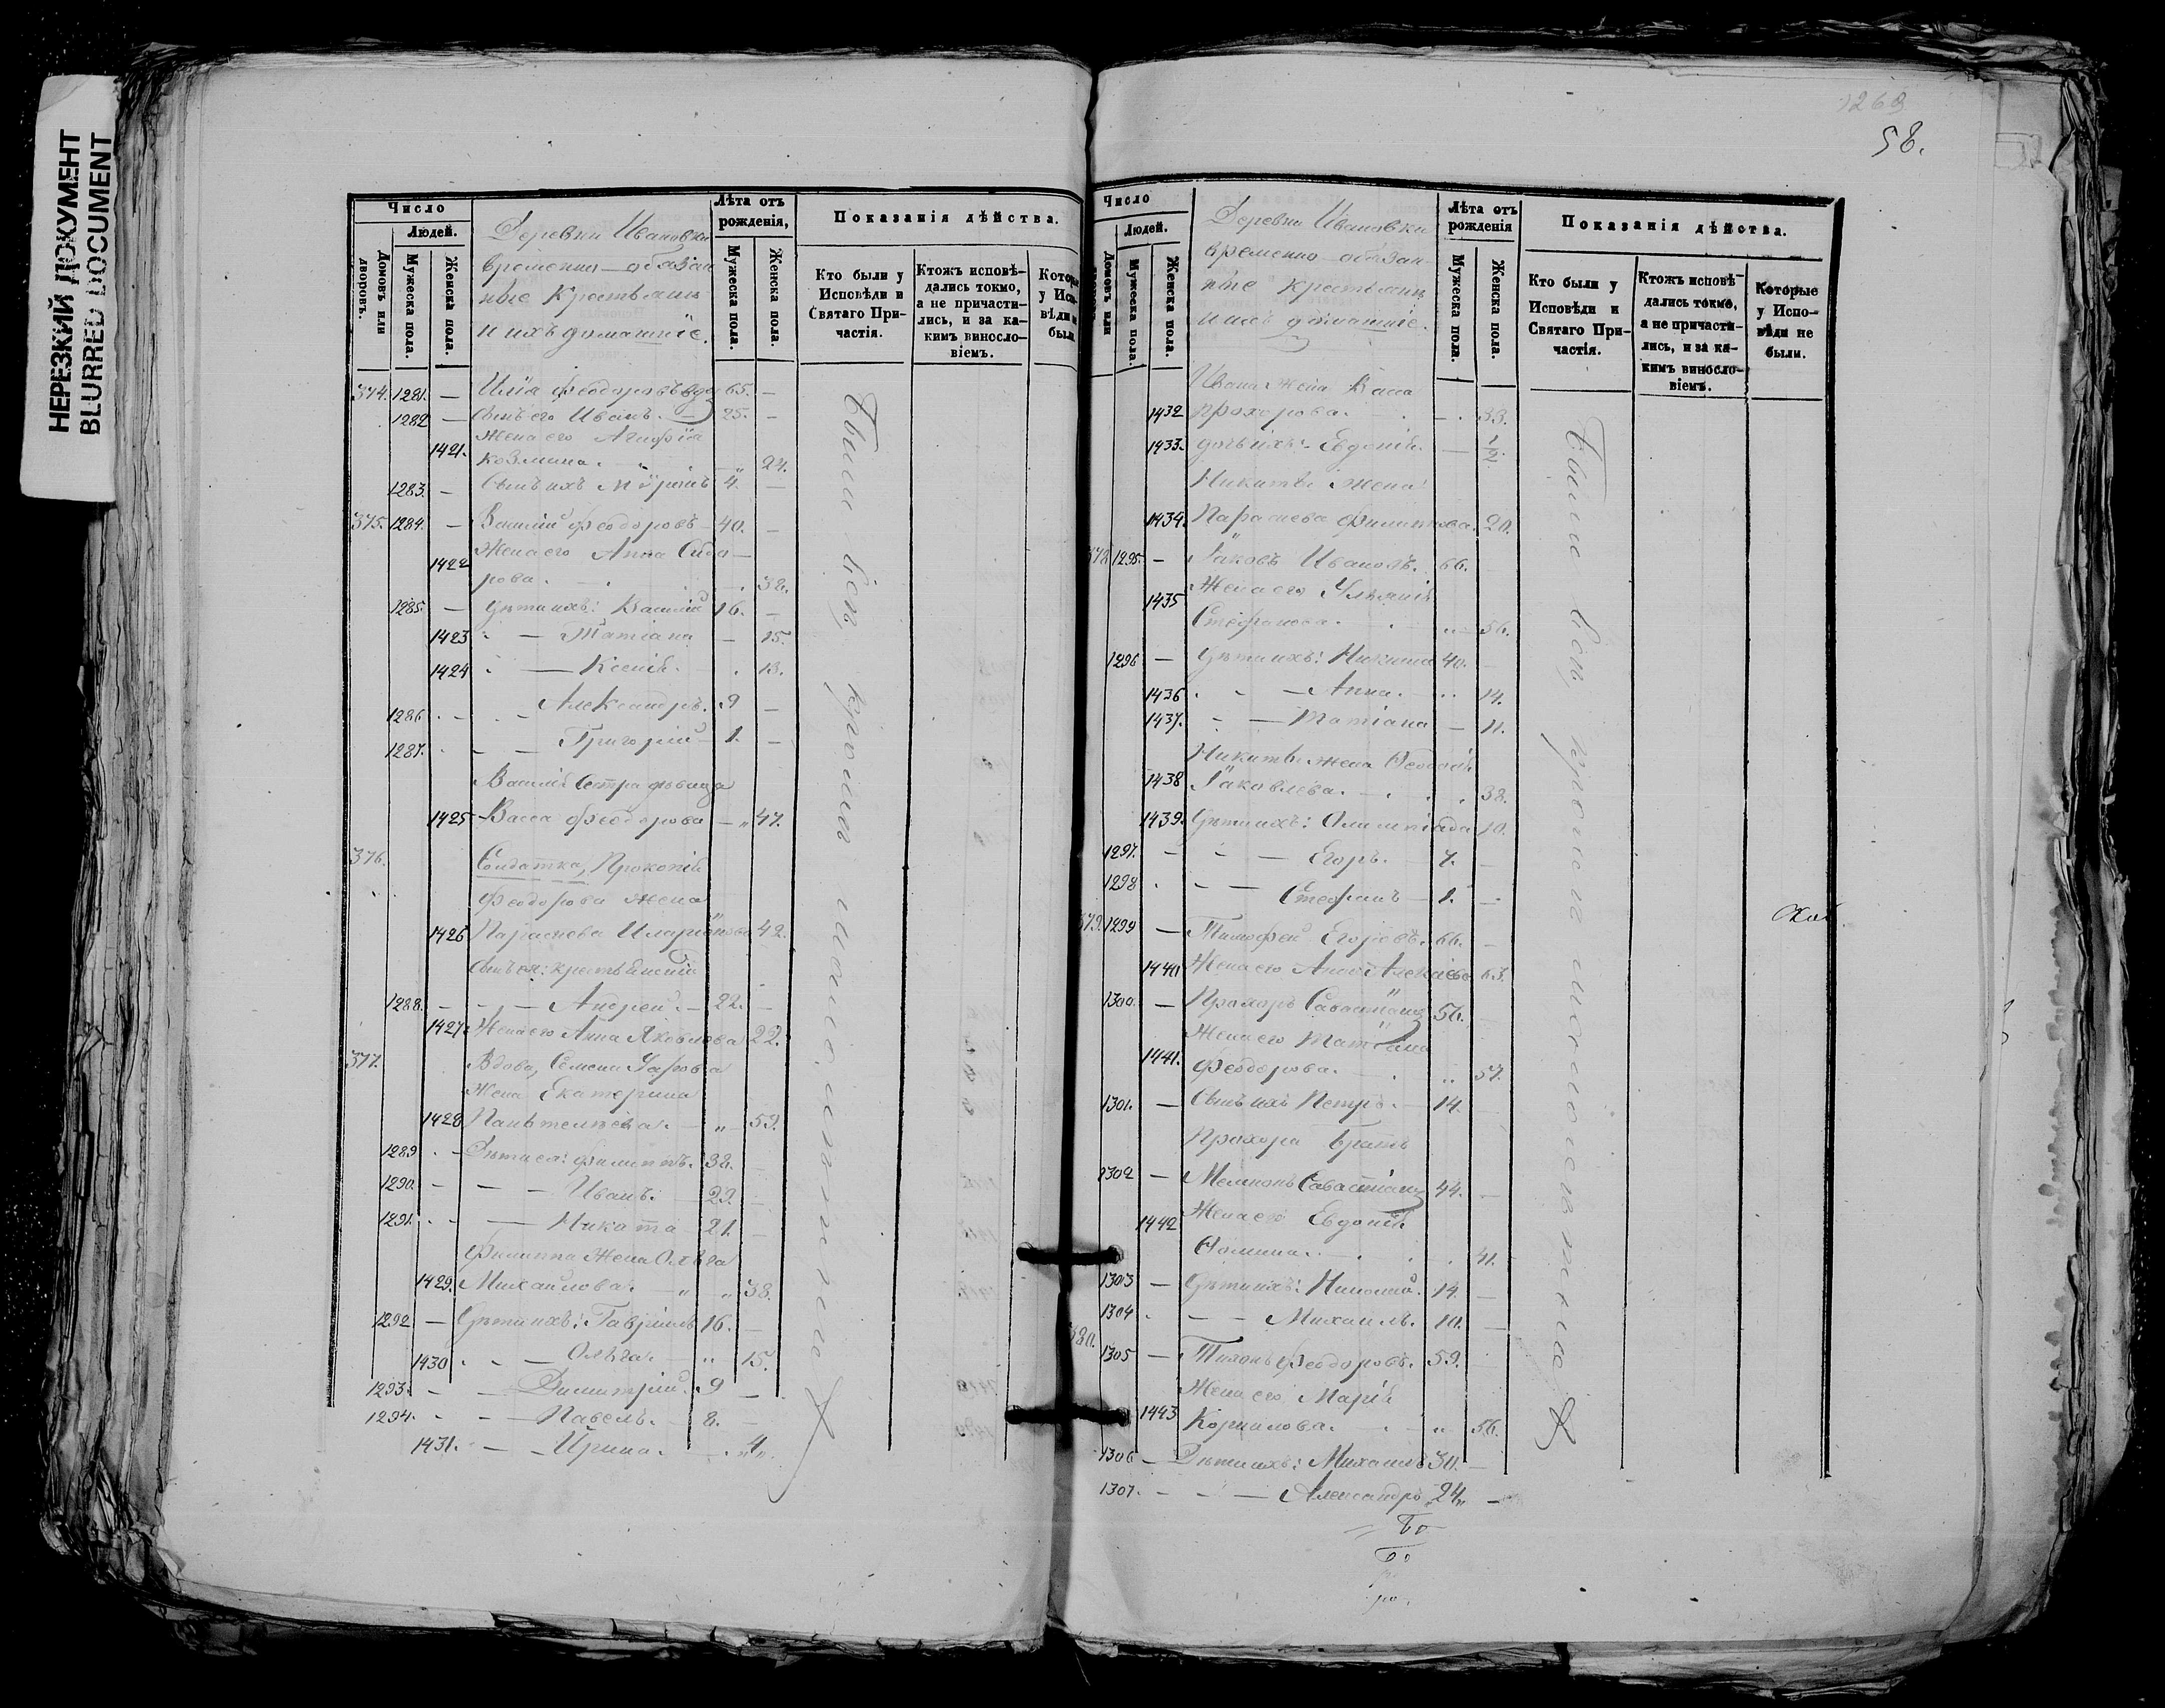 НЕРЕЗКИЙ ДОКУМЕНТ
BLURRED DOCUMENT
Число
Людей.
Домовъ или дворовъ.
Мужеска пола.
Женска пола.
Деревни Ивановки
временно-обязан
ные Крестьяне
и ихъ домашніе.
Лѣта отъ рожденія,
Мужеска пола.
Женска пола.
Показанія дѣйства.
Кто были у Исповѣди и Святаго Причастія.
Ктожъ исповѣдались токмо, а не причастились, и за какимъ винословіемъ.
374. 1281. — Илія Феодоровъ вдов 65. —
1282 — Сынъ его Иванъ. — 25. —
Жена его
1421. Козмина. 24.
1283. — Сынъ ихъ 4. —
375. 1284. — Василій Феодоровъ 40. —
Жена его Анна Сидо-
1422 рова. 38.
1285. — Дѣти ихъ: Василій 16. —
1423 — Татіана — 15.
1424 — Ксенія. 13.
1286. Александръ. 9 —
1287. Григорій 1. —
Василія Сестра дѣвица
1425 Васса Феодорова — 47.
376. Солдатка, Прокопія
Феодорова жена
1426 Параскева Иларіонова 42.
Сынъ ея:
1288. — Андрей. — 22. —
1427. Жена его Анна Яковлева 22.
377. Вдова, Семена
Жена Екатерина
1428 Пантелеева. 59.
1289 Дѣти ея: Филиппъ. 38. —
1290. — — Иванъ. 29. —
1291. — Никита 21. —
Филиппа Жена Ольга
1429. Михайлова. 38.
1292 — Дѣти ихъ: Гавріилъ 16. —
1430 — Ольга. 15.
1293. — Димитрій. 9 —
1294. — Павелъ. 8. —
1431. — Ирина. 4
Были всѣ кромѣ
1268
58.
Число
Людей.
Мужеска пола.
Женска пола.
Деревни Ивановки
временно-обязан
ные крестьяне
и ихъ домашніе.
Лѣта отъ рожденія
Мужеска пола.
Женска пола.
Показанія дѣйства.
Кто были у Исповѣди и Святаго Причастія.
Ктожъ исповѣдались токмо, а не причастились, и за какимъ винословіемъ.
Которые у Исповѣди не были.
Ивана жена Васса
1432 Прохорова. 33.
1433. дочь ихъ: Евдокія. — 1/2.
Никиты Жена
1434. Параскева Филиппова. 20.
378 1295. — Іаковъ Ивановъ. 66.
Жена его Ульянія
1435 Стефанова. 56.
1296 — Дѣти ихъ: Никита 40. —
1436 — Анна. 14.
1437. — Татіана — 11.
Никиты жена
1438 Іаковлева. 38.
1439. Дѣти ихъ: Олимпіада 10.
1297. — Егоръ. 7. —
1298 — Стефанъ 1. —
379. 1299 — Тимофей Егоровъ. 66. —
1440 Жена его 63.
1300. — Прохоръ 56. —
Жена его Татіана
1441. Феодорова. 57.
1301. — Сынъ ихъ Петръ. 14. —
Прохора братъ
1302 — 44. —
Жена его Евдокія
1442 Фомина. 41.
1303 — Дѣти ихъ: Николай. 14. —
1304 — Михаилъ. 10. —
380. 1305 — Тихонъ Феодоровъ. 59. —
Жена его Марія
1443 Корнилова. 56.
1306 — Дѣти ихъ: Михаилъ 30. —
1307. — Александръ 24 —
Были всѣ кромѣ